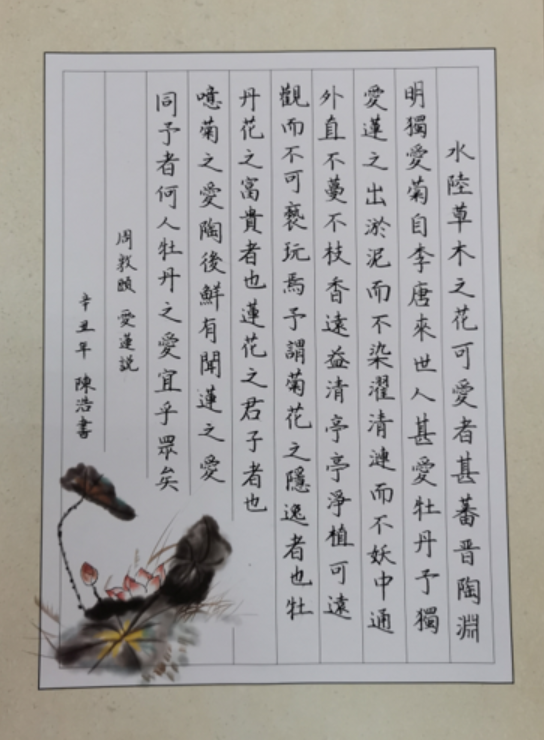 水陸草木之花可愛者甚蕃晋陶淵
明獨愛菊自李唐來世人甚愛牡丹予獨
愛蓮之出淤泥而不染濯清漣而不妖中通
外直不蔓不枝香遠益清亭亭淨植可遠
觀而不可褻玩焉予謂菊花之隱逸者也牡
丹花之富貴者也蓮花之君子者也
噫菊之愛陶後鮮有聞蓮之愛
同予者何人牡丹之愛宜乎眾矣
周敦頤 愛蓮説
辛丑年 陳浩書